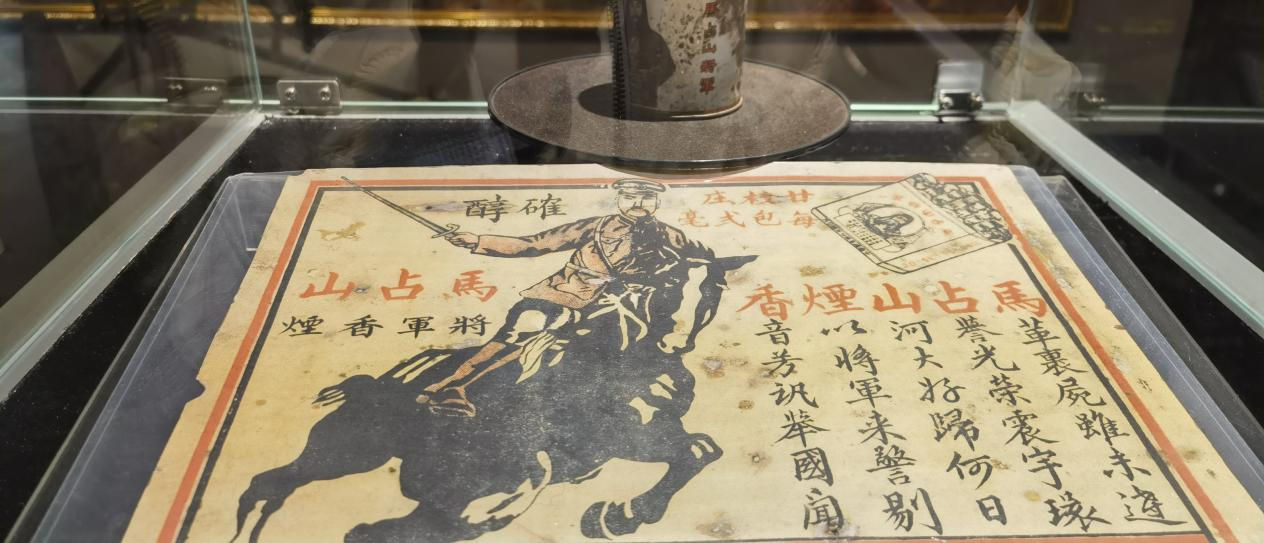 馬占山將軍
確醇
廿枝庄
每包弍毫
馬占山
將軍香煙
馬占山煙香
革裹屍雖未達
譽光榮震宇環
河大好歸何日
以將軍来警剔
音芳訊舉國聞